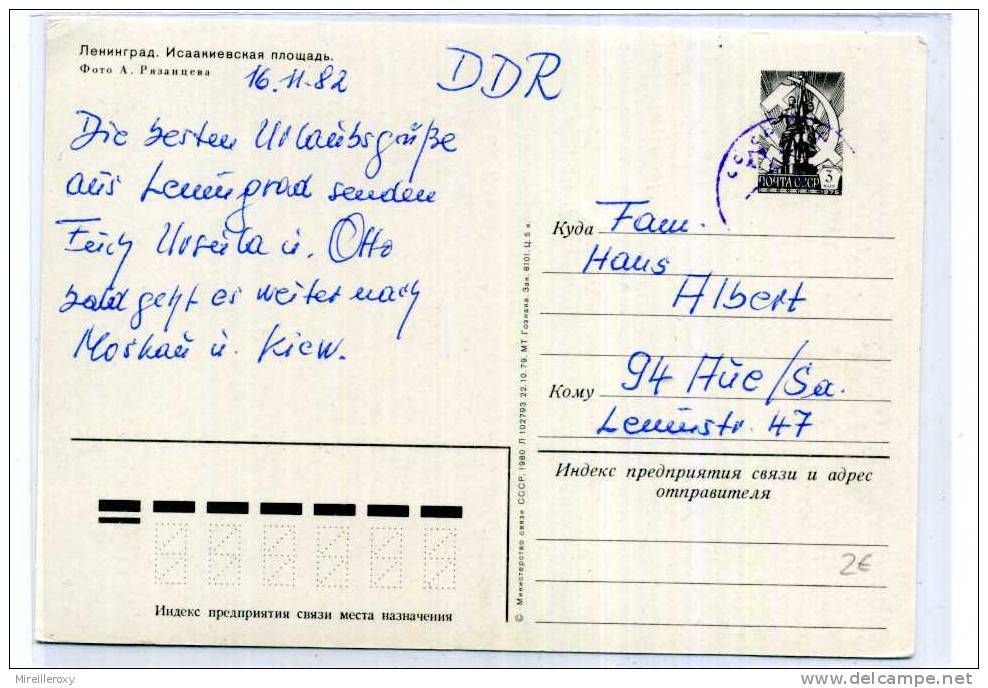 Ленинград. Исаакиевская площадь.
Фото А. Рязанцева
16.11.82
DDR
Die besten Urlaubsgrüße
aus Leningrad senden
Euch Ursula u. Otto
bald geht es weiter nach
Moskau u. Kiew.
ПОЧТА СССР 3
Куда Fam.
Hans
Albert
Кому 94 Aue/Sa.
Leninstr. 47
Индекс предприятия связи и адрес
отправителя
2€
Индекс предприятия связи места назначения
© Министерство связи СССР, 1980 Л 102793 22.10.79. МТ Гознака. Зак. 8101. Ц. 5 к.
Mireilleroxy
delcampe.net